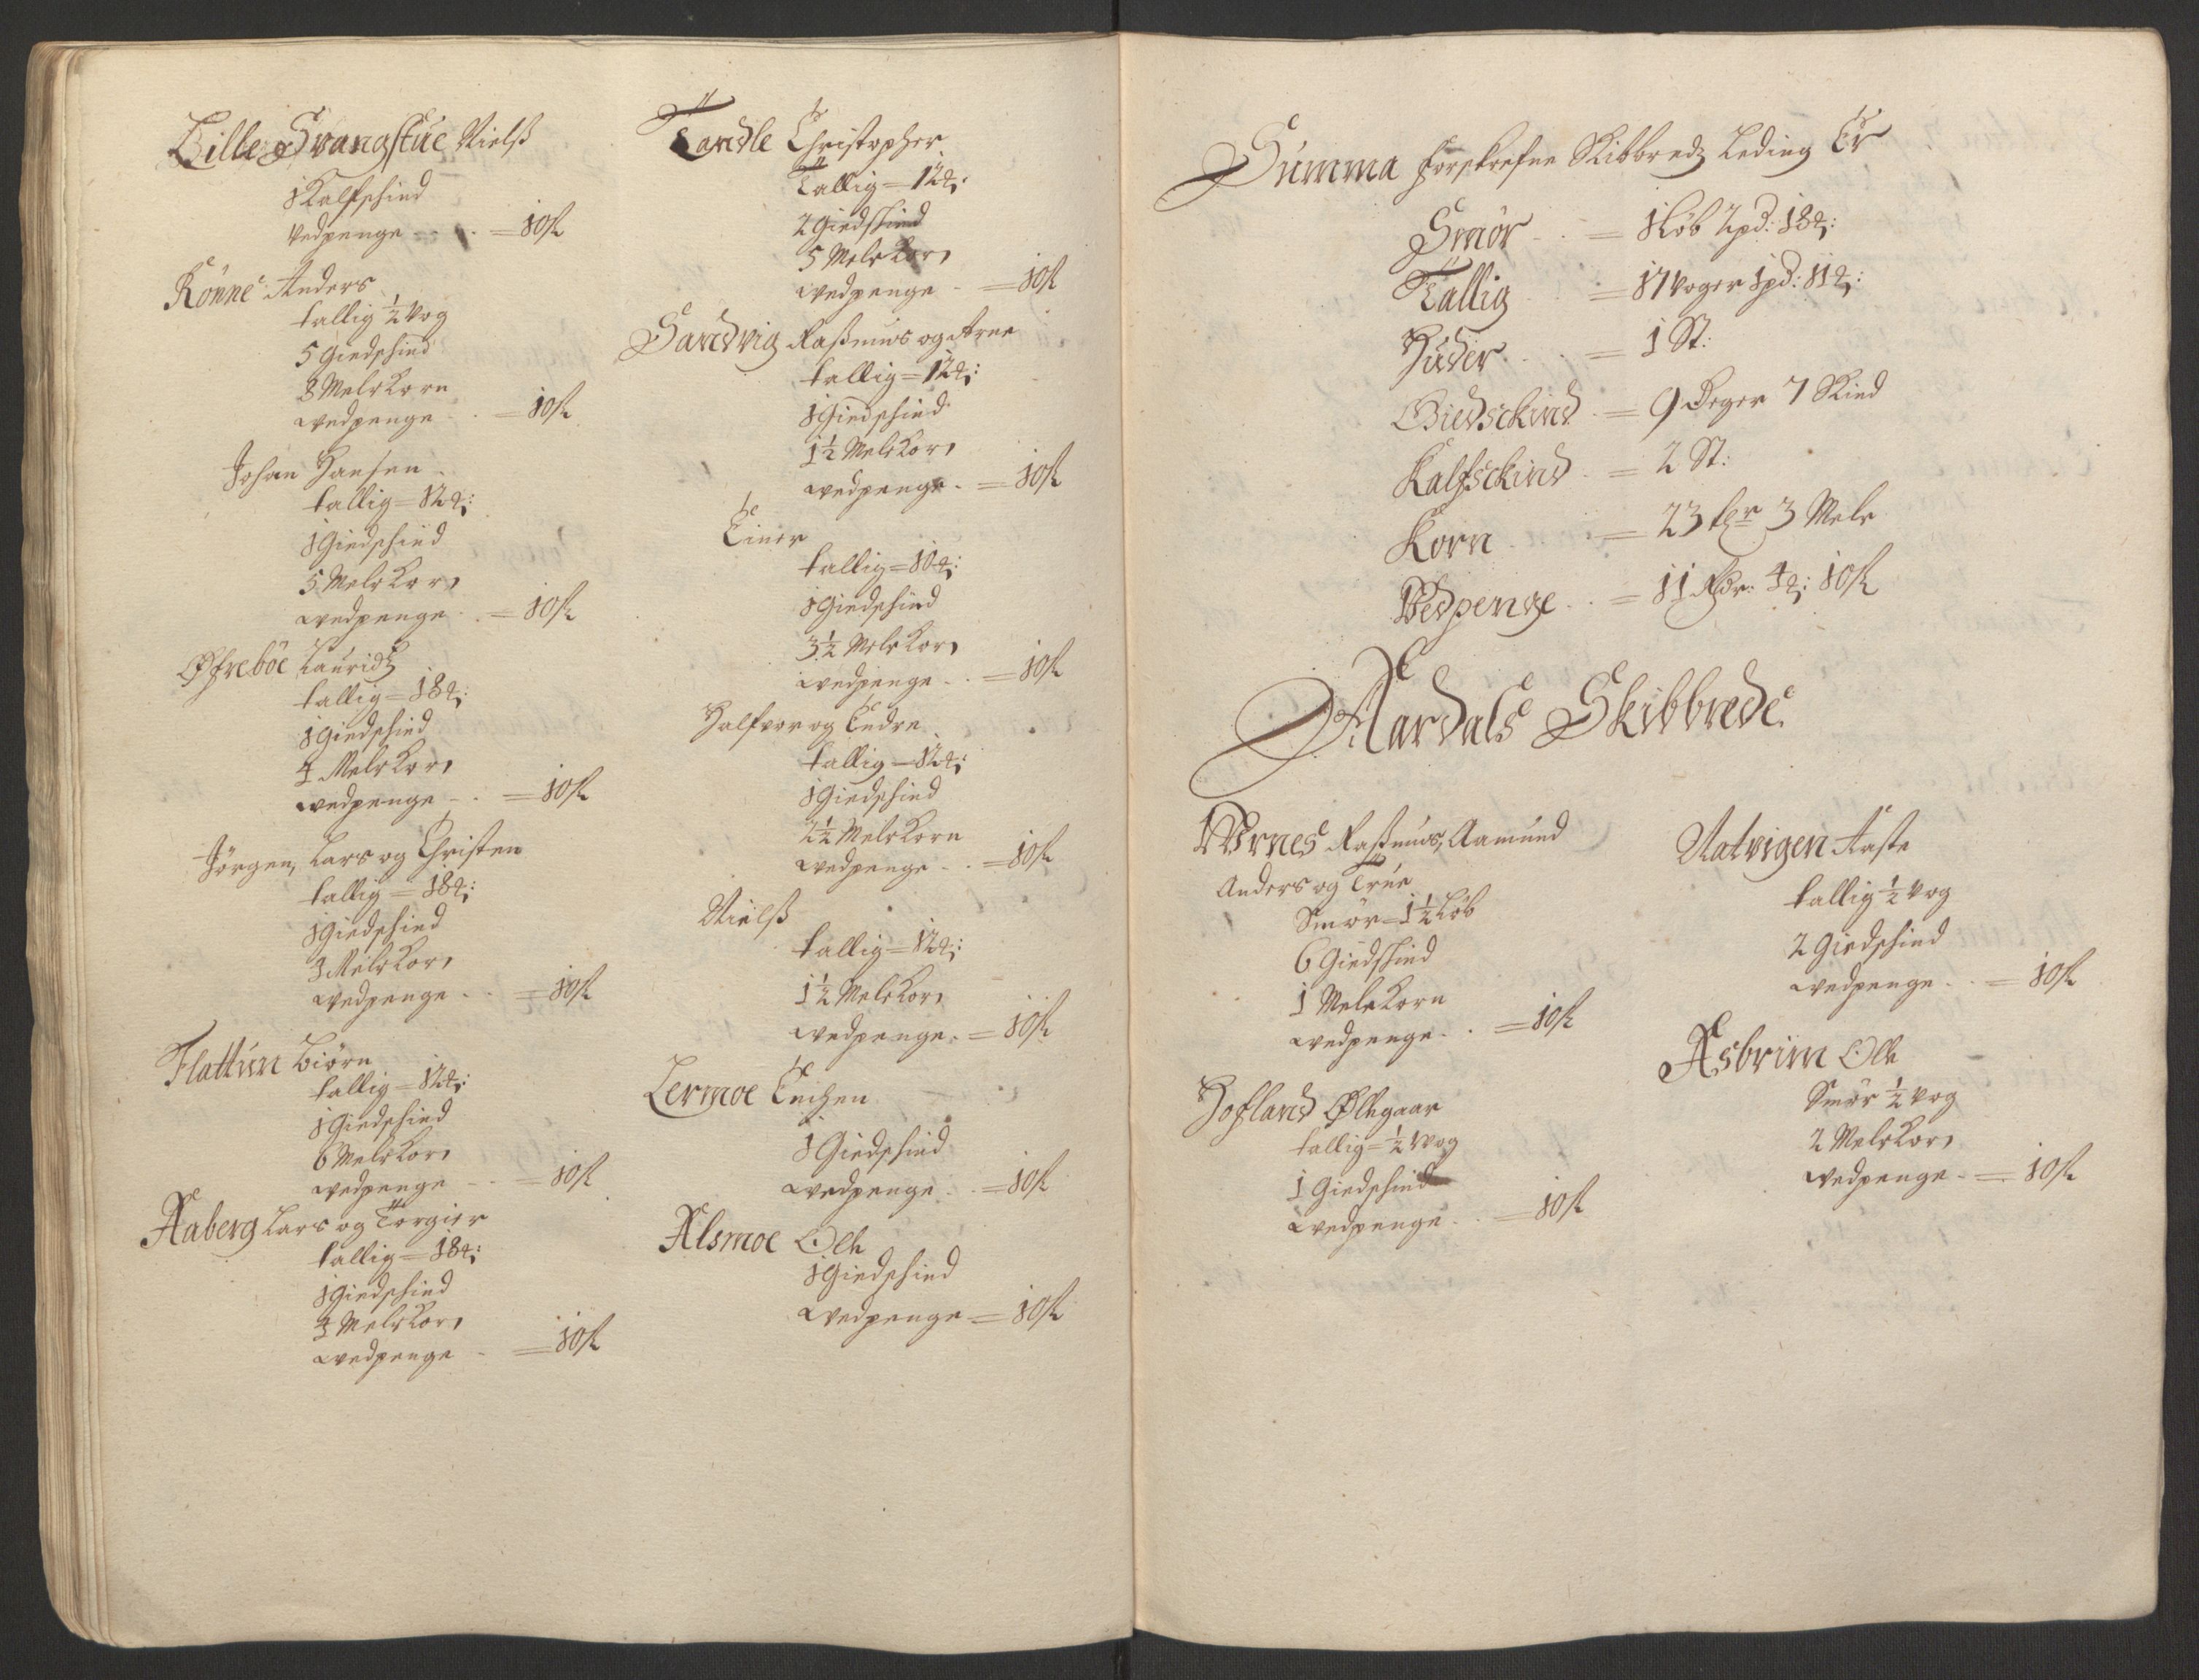 Lille Svangstue Nielß
1 Kalfschind
Vedpenge - - = 10 ß
Rönne Anders
tallig ½ Vog
5 Giedschind
8 Mele Korn
wedpenge - = 10 ß
Johan Hansen
tallig = 12 ℔:
1 Giedschind
5 Mele Korn
wedpenge - = 10 ß
Øfreböe Lauridtz
tallig = 18 ℔:
1 Giedschind
4 Mele Korn
wedpenge - = 10 ß
Jörgen, Lars og Christen
tallig = 18 ℔:
1 Giedschind
3 Mele Korn
wedpenge - = 10 ß
Flattun Biörn
tallig = 12 ℔:
1 Giedschind
6 Mele Korn
wedpenge - = 10 ß
Aaberg Lars og Torgier
tallig = 18 ℔:
1 Giedschind
4 Mele Korn
wedpenge - = 10 ß
Tandle Christopher
Tallig = 12 ℔:
2 Giedschind
5 Mele Korn
wedpenge - = 10 ß
Sandvig Raßmus og Arne
tallig = 12 ℔:
1 Giedschind
1½ Mele Korn
wedpenge - = 10 ß
Einer
tallig = 10 ℔:
1 Giedschind
3½ Mele Korn
wedpenge - = 10 ß
Halfvor og Endre
tallig = 12 ℔:
1 Giedschind
2½ Mele Korn
wedpenge - = 10 ß
Nielß
tallig = 12 ℔:
1½ Mele Korn
wedpenge - = 10 ß
Lermoe Enchen
1 Giedschind
wedpenge - = 10 ß
Alsmoe Ole
1 Giedschind
wedpenge = 10 ß
Summa forskrefne Skibbredz Leding Er
Smör - = 1 Löb 2 pd: 18 ℔:
Tallig = 17 Voger 1 pd: 11 ℔:
Huder - = 1 St:
Giedschind = 9 Deger 7 Skind
Kalfschind - = 2 St:
Korn = 23 tdr 3 Mele
Vedpenge - = 11 Rdr: 4 ℔: 10 ß
Aardals Skibbrede
Urnes Raßmus, Aamund
Anders og True
Smör = 1½ Löb
6 Giedschind
1 Mele Korn
wedpenge - = 10 ß
Hofland Ølegaar
tallig = ½ Wog
1 Giedschind
wedpenge - = 10 ß
Natvigen Aaste
tallig ½ Vog
2 Giedschind
wedpenge - = 10 ß
Asbrim Ole
Smör ½ Vog
2 Mele Korn
wedpenge - = 10 ß